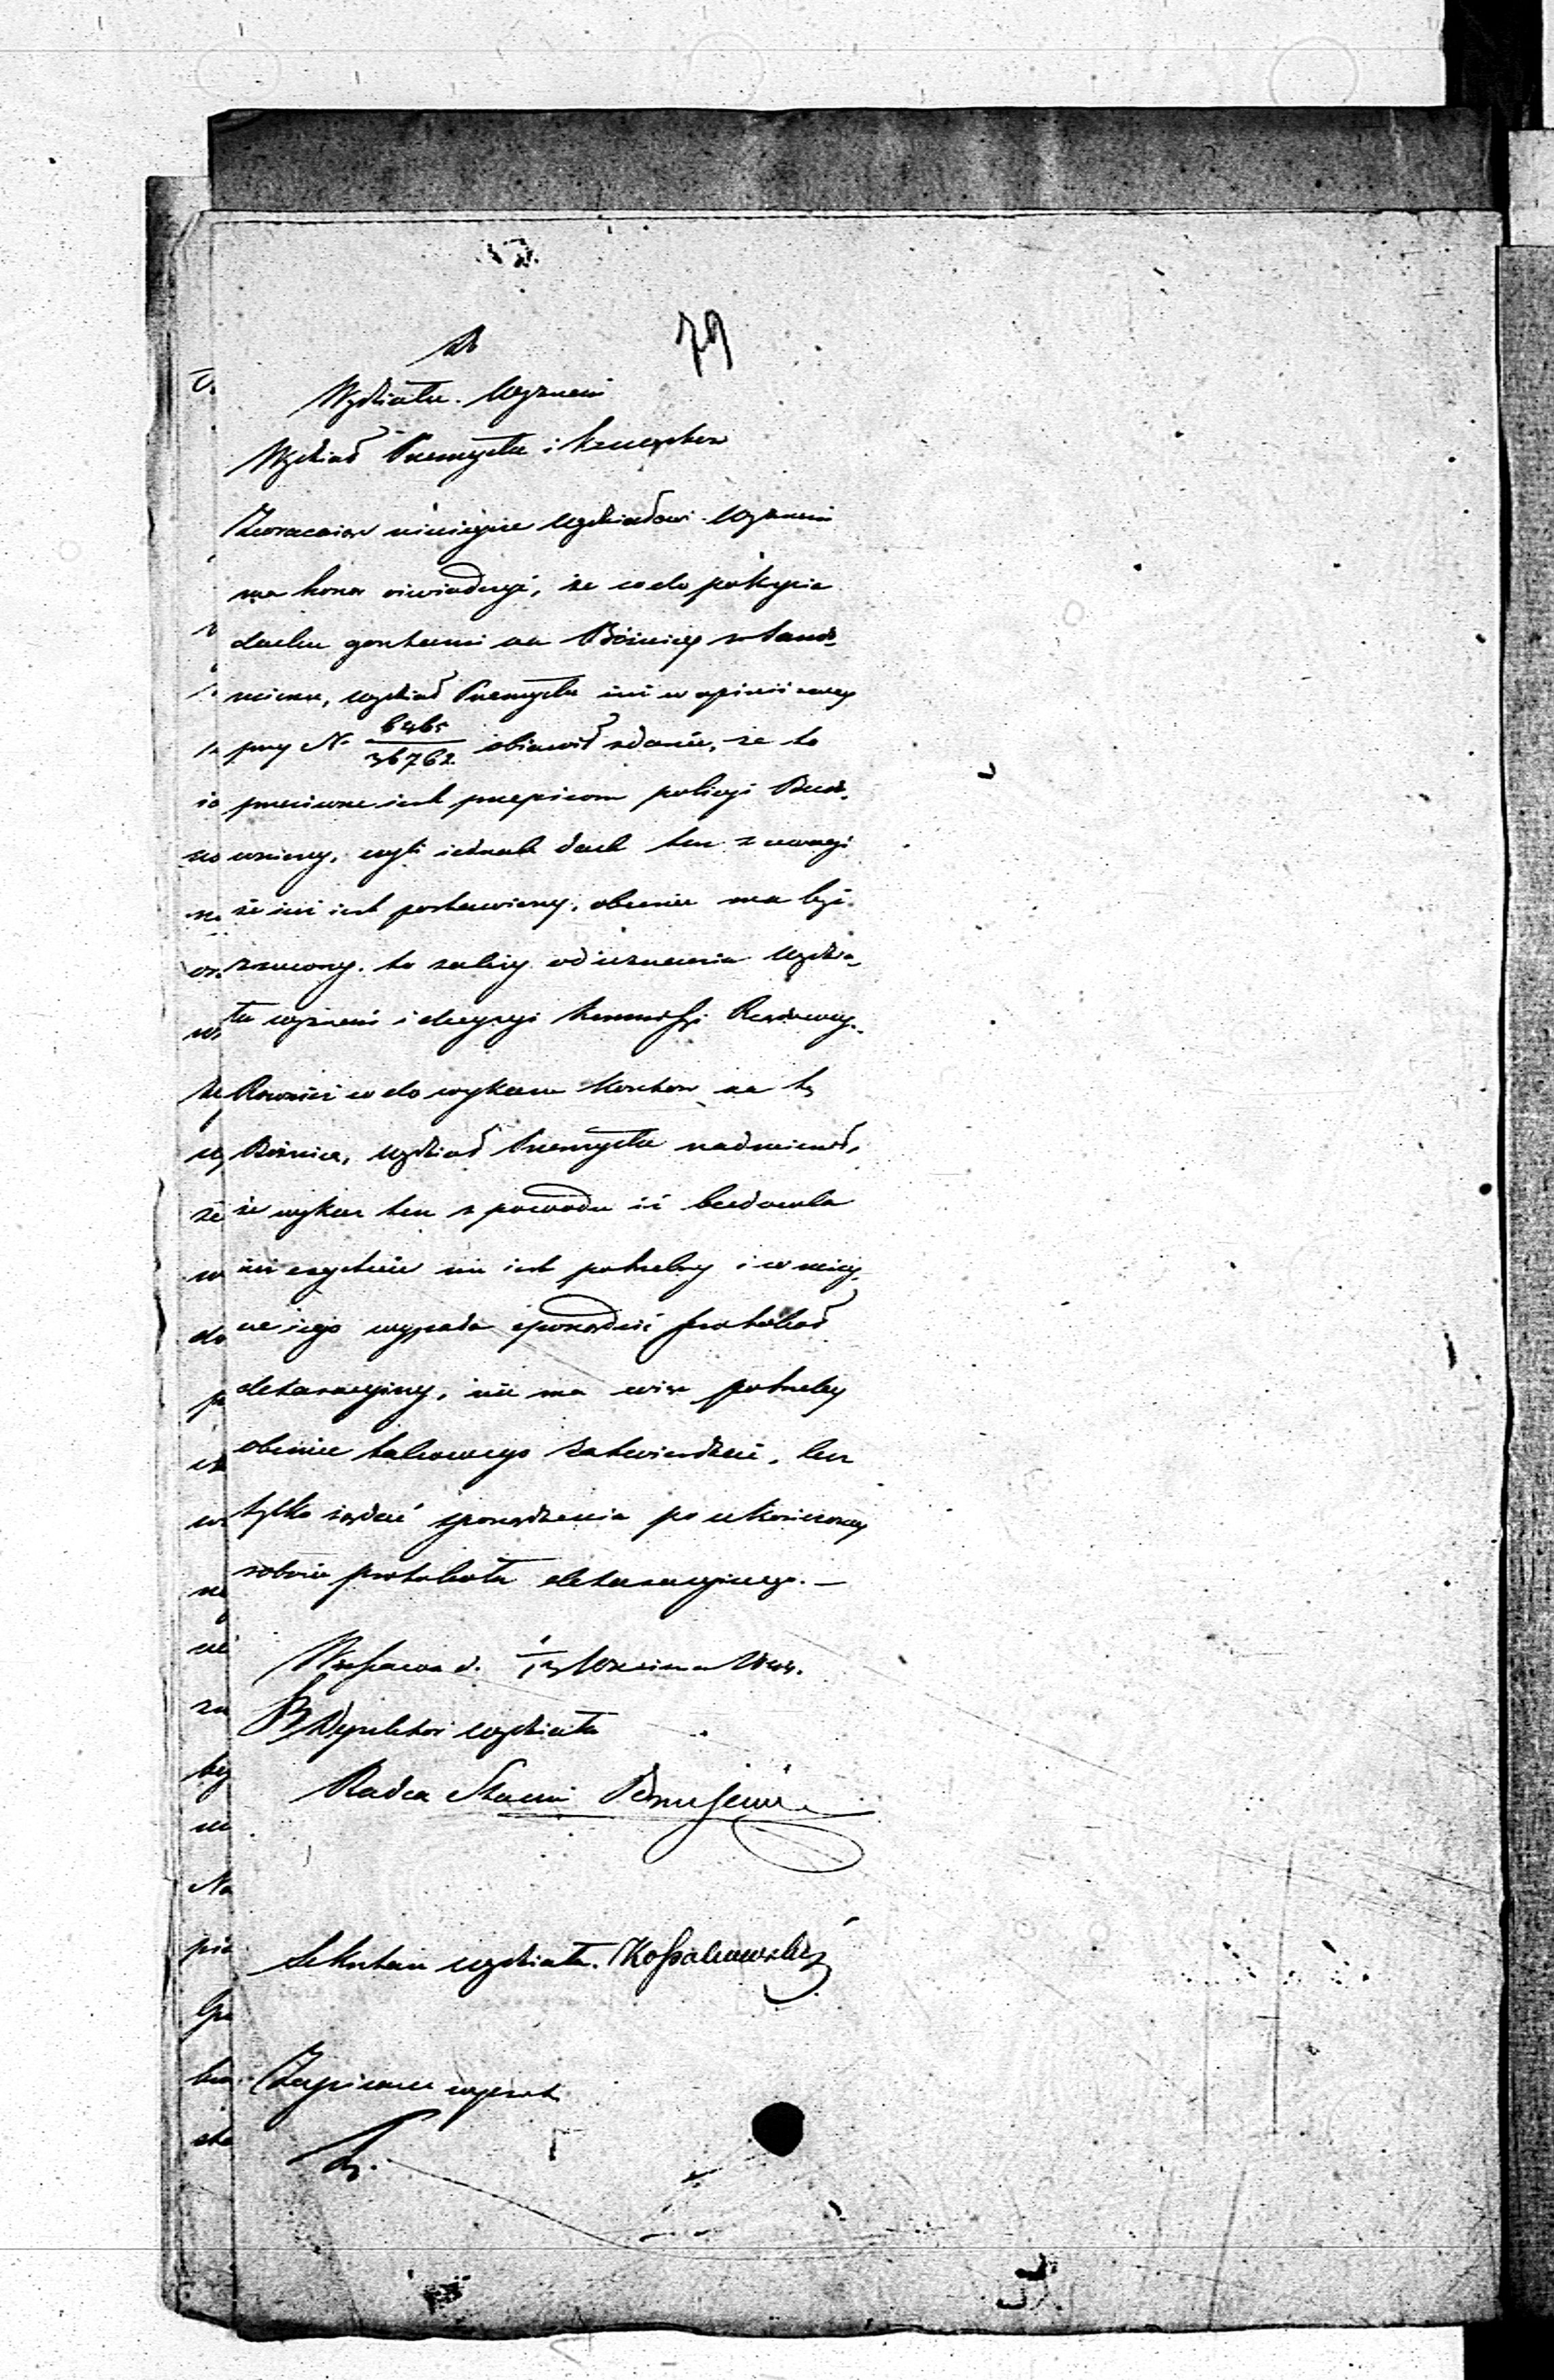 79
Do
Wydziału Wyznań
Wydział Przemysłu i Kunsztów
Zwracaiąc ninieysze Wydziałowi Wyznań
ma honor oświadczyć, że co do pokrycia
dachu gontami na Bóżnicy w Sando-
mierzu, wydział Przemysłu iuż w opinii swey
przy N. 6465/36762 obiawił zdanie, że to
przeciwne iest przepisom policyi Budo-
wniczey, czyli iednak dach ten z uwagi
że iuż iest postawiony, obecnie ma być
zrzucony, to zależy od uznania Wydzia-
łu wyznań i decyzyi Kommissyi Rządowey.
Również co do wykazu kosztów na tę
Bóżnicę, wydział Przemysłu nadmienił,
że wykaz ten z powodu iż budowla
iuż exystuie nie iest potrzebny i w miey-
sce iego wypada sporządzić protokół
detaxacyiny, nie ma więc potrzeby
obecnie takowego zatwierdzać, lecz
tylko żądać sporządzenia po ukończoney
robocie protokołu detaxacyinego. —
Warszawa d. Września
Z Dyrektora wydziału
Radca Stanu
Sekretarz wydziału. Kossakowski